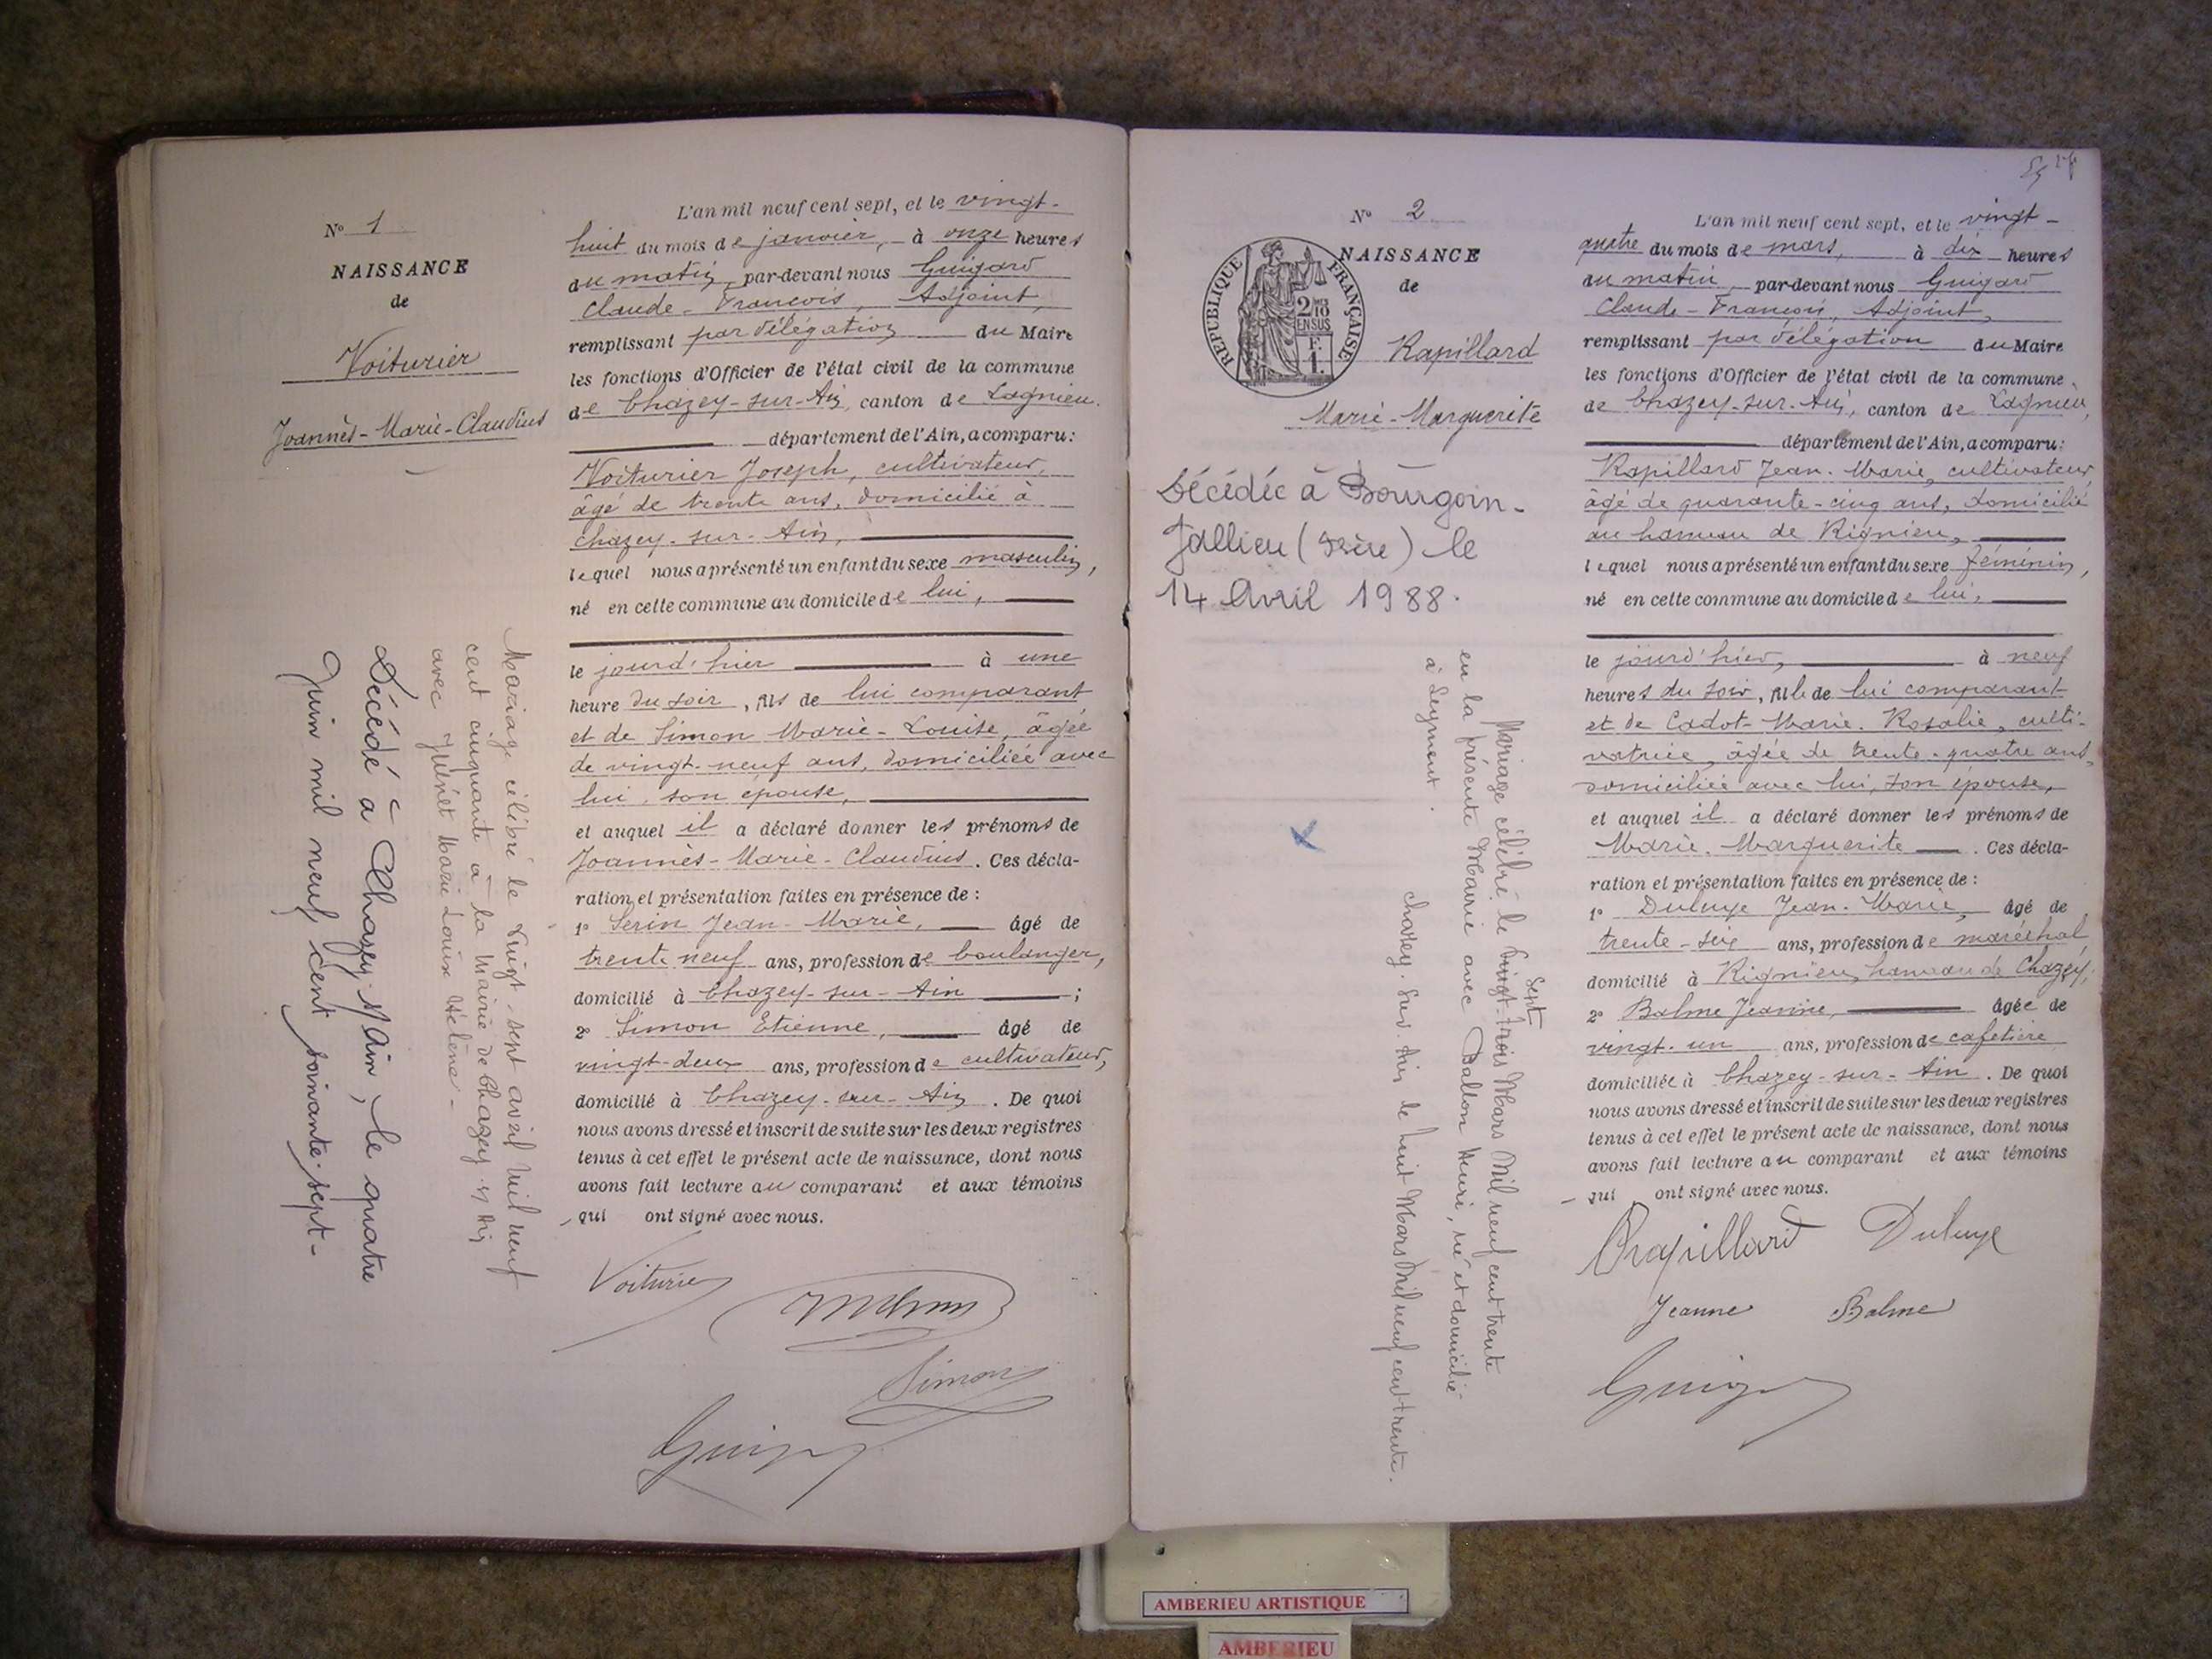 N° 1
NAISSANCE
de
Voiturier
Joannès-Marie-Claudius
Mariage célébré le vingt-sept avril mil neuf
cent cinquante à la Mairie de Chazey s/ Ain
avec Marie Louise Hélène -
Décédé à Chazey s/Ain, le quatre
Juin mil neuf cent soixante-sept -
L'an mil neuf cent sept, et le vingt-
huit du mois de janvier, à onze heures
du matin, par-devant nous Guigard
Claude-François, Adjoint,
remplissant par délégation du Maire
les fonctions d'Officier de l'état civil de la commune
de Chazey-sur-Ain, canton de Lagnieu.
département de l'Ain, a comparu:
Voiturier Joseph, cultivateur,
âgé de trente ans, domicilié à
Chazey-sur-Ain,
lequel nous a présenté un enfant du sexe masculin,
né en cette commune au domicile de lui,
le jourd'hier à une
heure du soir, fils de lui comparant
et de Simon Marie-Louise, âgée
de vingt-neuf ans, domiciliée avec
lui, son épouse,
et auquel il a déclaré donner les prénoms de
Joannès-Marie-Claudius. Ces décla-
ration et présentation faites en présence de :
1° Serin Jean-Marie, âgé de
trente neuf ans, profession de boulanger,
domicilié à Chazey-sur-Ain ;
2° Simon Etienne, âgé de
vingt-deux ans, profession de cultivateur,
domicilié à Chazey-sur-Ain. De quoi
nous avons dressé et inscrit de suite sur les deux registres
tenus à cet effet le présent acte de naissance, dont nous
avons fait lecture au comparant et aux témoins
qui ont signé avec nous.
Voiturier
Simon
N° 2
NAISSANCE
de
RÉPUBLIQUE FRANÇAISE
2/10 EN SUS
F. 1.
Rapillard
Marie-Marguerite
Décédée à Bourgoin-
Jallieu (Isère) le
14 Avril 1988.
Mariage célébré le vingt-trois sept Mars Mil neuf cent trente
en la présente Mairie avec Ballon Henri, né et domicilié
à Leyment.
Chazey-sur-Ain le huit Mars Mil neuf cent trente.
L'an mil neuf cent sept, et le vingt-
quatre du mois de mars, à dix heures
du matin, par-devant nous Guigard
Claude-François, Adjoint,
remplissant par délégation du Maire
les fonctions d'Officier de l'état civil de la commune
de Chazey-sur-Ain, canton de Lagnieu,
département de l'Ain, a comparu:
Rapillard Jean-Marie, cultivateur,
âgé de quarante-cinq ans, domicilié
au hameau de Rignieu,
lequel nous a présenté un enfant du sexe féminin,
né en cette commune au domicile de lui,
le jourd'hier, à neuf
heures du soir, fille de lui comparant
et de Cadot Marie-Rosalie, culti-
vatrice, âgée de trente-quatre ans,
domiciliée avec lui, son épouse,
et auquel il a déclaré donner les prénoms de
Marie-Marguerite. Ces décla-
ration et présentation faites en présence de :
1° Duluye Jean-Marie, âgé de
trente-six ans, profession de maréchal
domicilié à Rignieu, hameau de Chazey,
2° Balme Jeanne, âgée de
vingt-un ans, profession de cafetière
domiciliée à Chazey-sur-Ain. De quoi
nous avons dressé et inscrit de suite sur les deux registres
tenus à cet effet le présent acte de naissance, dont nous
avons fait lecture au comparant et aux témoins
qui ont signé avec nous.
Rapillard Duluye
Jeanne Balme
AMBERIEU ARTISTIQUE
AMBERIEU